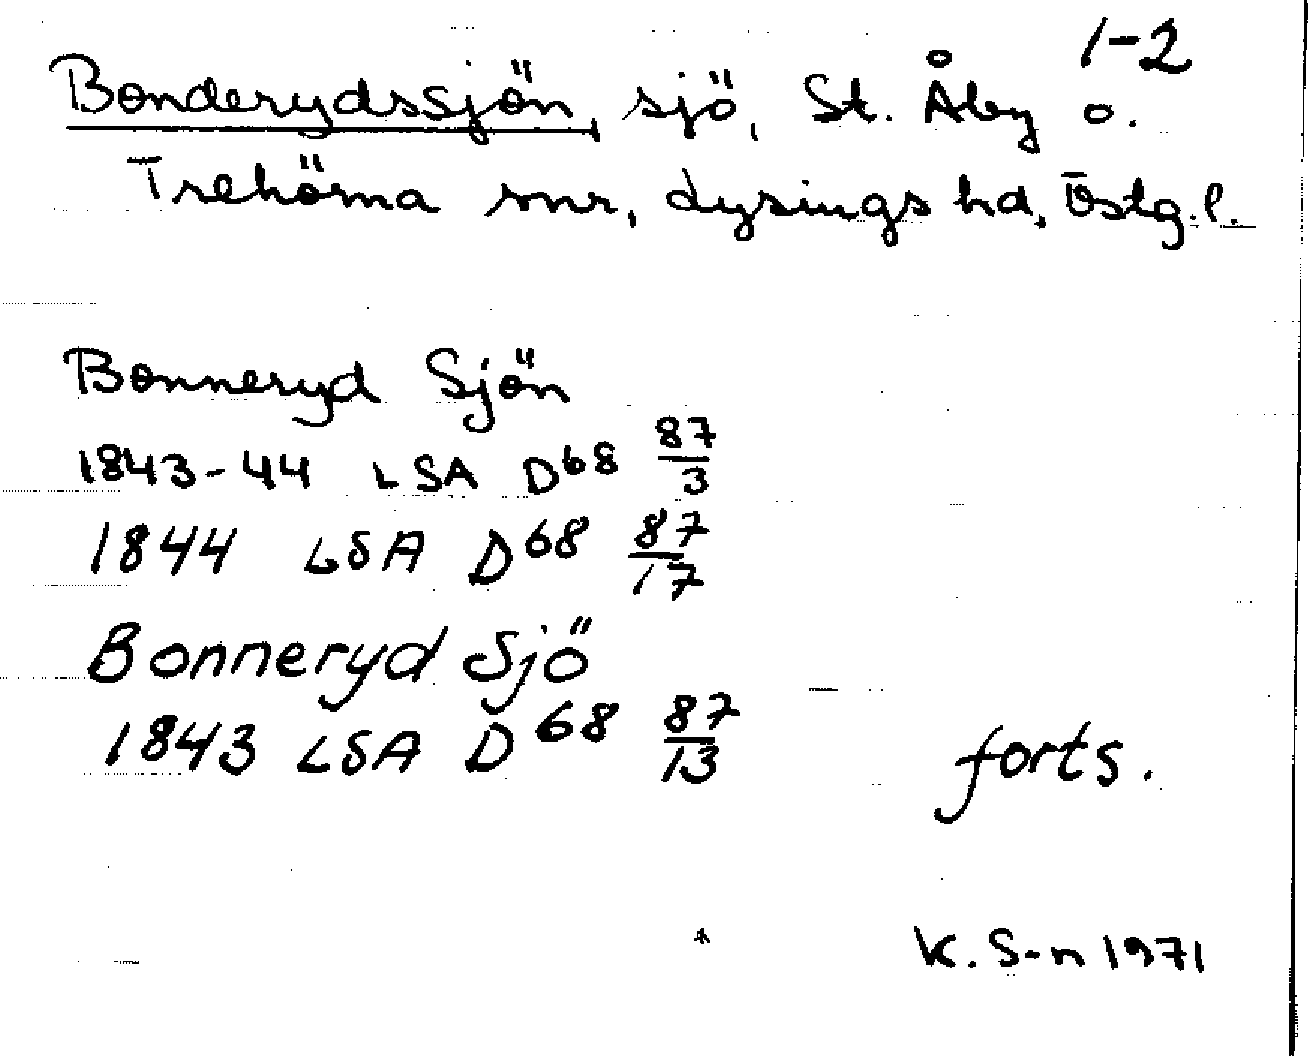 1-2
Bonderydssjön, sjö, St. Åby o.
Trehörna snr, Lysings hd, Östg.l.
Bonneryd Sjön
1843-44 LSA D68 87/3
1844 LSA D68 87/17
Bonneryd Sjö
1843 LSA D68 87/13
forts.
K. S-n 1971